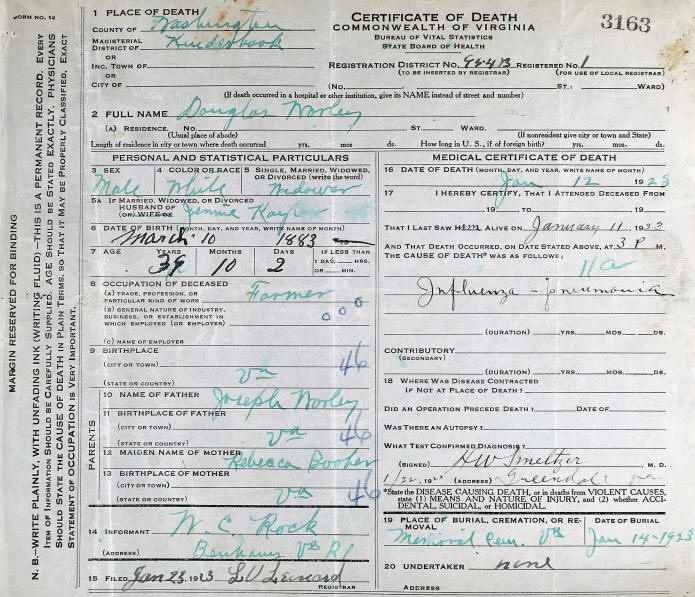 FORM NO. 12
MARGIN RESERVED FOR BINDING
N. B.—WRITE PLAINLY, WITH UNFADING INK (WRITING FLUID)—THIS IS A PERMANENT RECORD. EVERY
ITEM OF INFORMATION SHOULD BE CAREFULLY SUPPLIED. AGE SHOULD BE STATED EXACTLY. PHYSICIANS
SHOULD STATE THE CAUSE OF DEATH IN PLAIN TERMS, SO THAT IT MAY BE PROPERLY CLASSIFIED. EXACT
STATEMENT OF OCCUPATION IS VERY IMPORTANT.
1 PLACE OF DEATH
COUNTY OF Washington
MAGISTERIAL
DISTRICT OF Kinderhook
OR
INC. TOWN OF
OR
CITY OF
CERTIFICATE OF DEATH
COMMONWEALTH OF VIRGINIA
BUREAU OF VITAL STATISTICS
STATE BOARD OF HEALTH
3163
REGISTRATION DISTRICT NO. 954B REGISTERED NO. 1
(TO BE INSERTED BY REGISTRAR) (FOR USE OF LOCAL REGISTRAR)
(No. ST.: WARD)
(If death occurred in a hospital or other institution, give its NAME instead of street and number)
2 FULL NAME Douglas Worley
(A) RESIDENCE. No. ST. WARD.
(Usual place of abode) (If nonresident give city or town and State)
Length of residence in city or town where death occurred yrs. mos. ds. How long in U. S., if of foreign birth? yrs. mos. ds.
PERSONAL AND STATISTICAL PARTICULARS
3 SEX 4 COLOR OR RACE 5 SINGLE, MARRIED, WIDOWED,
OR DIVORCED (write the word)
Male White Widower
5A IF MARRIED, WIDOWED, OR DIVORCED
HUSBAND OF
(OR) WIFE OF Jennie
6 DATE OF BIRTH (MONTH, DAY, AND YEAR, WRITE NAME OF MONTH)
March 10 1883
7 AGE YEARS MONTHS DAYS IF LESS THAN
1 DAY, HRS.
OR MIN.
39 10 2
8 OCCUPATION OF DECEASED
(A) TRADE, PROFESSION, OR
PARTICULAR KIND OF WORK Farmer
(B) GENERAL NATURE OF INDUSTRY,
BUSINESS, OR ESTABLISHMENT IN
WHICH EMPLOYED (OR EMPLOYER)
000
(C) NAME OF EMPLOYER
9 BIRTHPLACE
(CITY OR TOWN)
(STATE OR COUNTRY) Va 46
PARENTS
10 NAME OF FATHER Joseph Worley
11 BIRTHPLACE OF FATHER
(CITY OR TOWN)
(STATE OR COUNTRY) Va 46
12 MAIDEN NAME OF MOTHER Rebecca Booher
13 BIRTHPLACE OF MOTHER
(CITY OR TOWN)
(STATE OR COUNTRY) Va 46
14 INFORMANT W. C. Rock
(ADDRESS) Benhams Va R1
15 FILED Jan 23, 1923 L V Leonard
REGISTRAR
MEDICAL CERTIFICATE OF DEATH
16 DATE OF DEATH (MONTH, DAY, AND YEAR, WRITE NAME OF MONTH)
Jan 12 1923
17 I HEREBY CERTIFY, THAT I ATTENDED DECEASED FROM
, 19 , TO , 19
THAT I LAST SAW HIM ALIVE ON January 11, 1923
AND THAT DEATH OCCURRED, ON DATE STATED ABOVE, AT 3 P M.
THE CAUSE OF DEATH* WAS AS FOLLOWS:
11a
Influenza - pneumonia
(DURATION) YRS. MOS. DS.
CONTRIBUTORY
(SECONDARY)
(DURATION) YRS. MOS. DS.
18 WHERE WAS DISEASE CONTRACTED
IF NOT AT PLACE OF DEATH?
DID AN OPERATION PRECEDE DEATH? DATE OF
WAS THERE AN AUTOPSY?
WHAT TEST CONFIRMED DIAGNOSIS?
(SIGNED) H W Smeltzer M. D.
1/22, 1923 (ADDRESS) Greendale Va.
*State the DISEASE CAUSING DEATH, or in deaths from VIOLENT CAUSES,
state (1) MEANS AND NATURE OF INJURY, and (2) whether ACCI-
DENTAL, SUICIDAL, or HOMICIDAL.
19 PLACE OF BURIAL, CREMATION, OR RE-
MOVAL DATE OF BURIAL
Cem. Va Jan 14-1923
20 UNDERTAKER none
ADDRESS